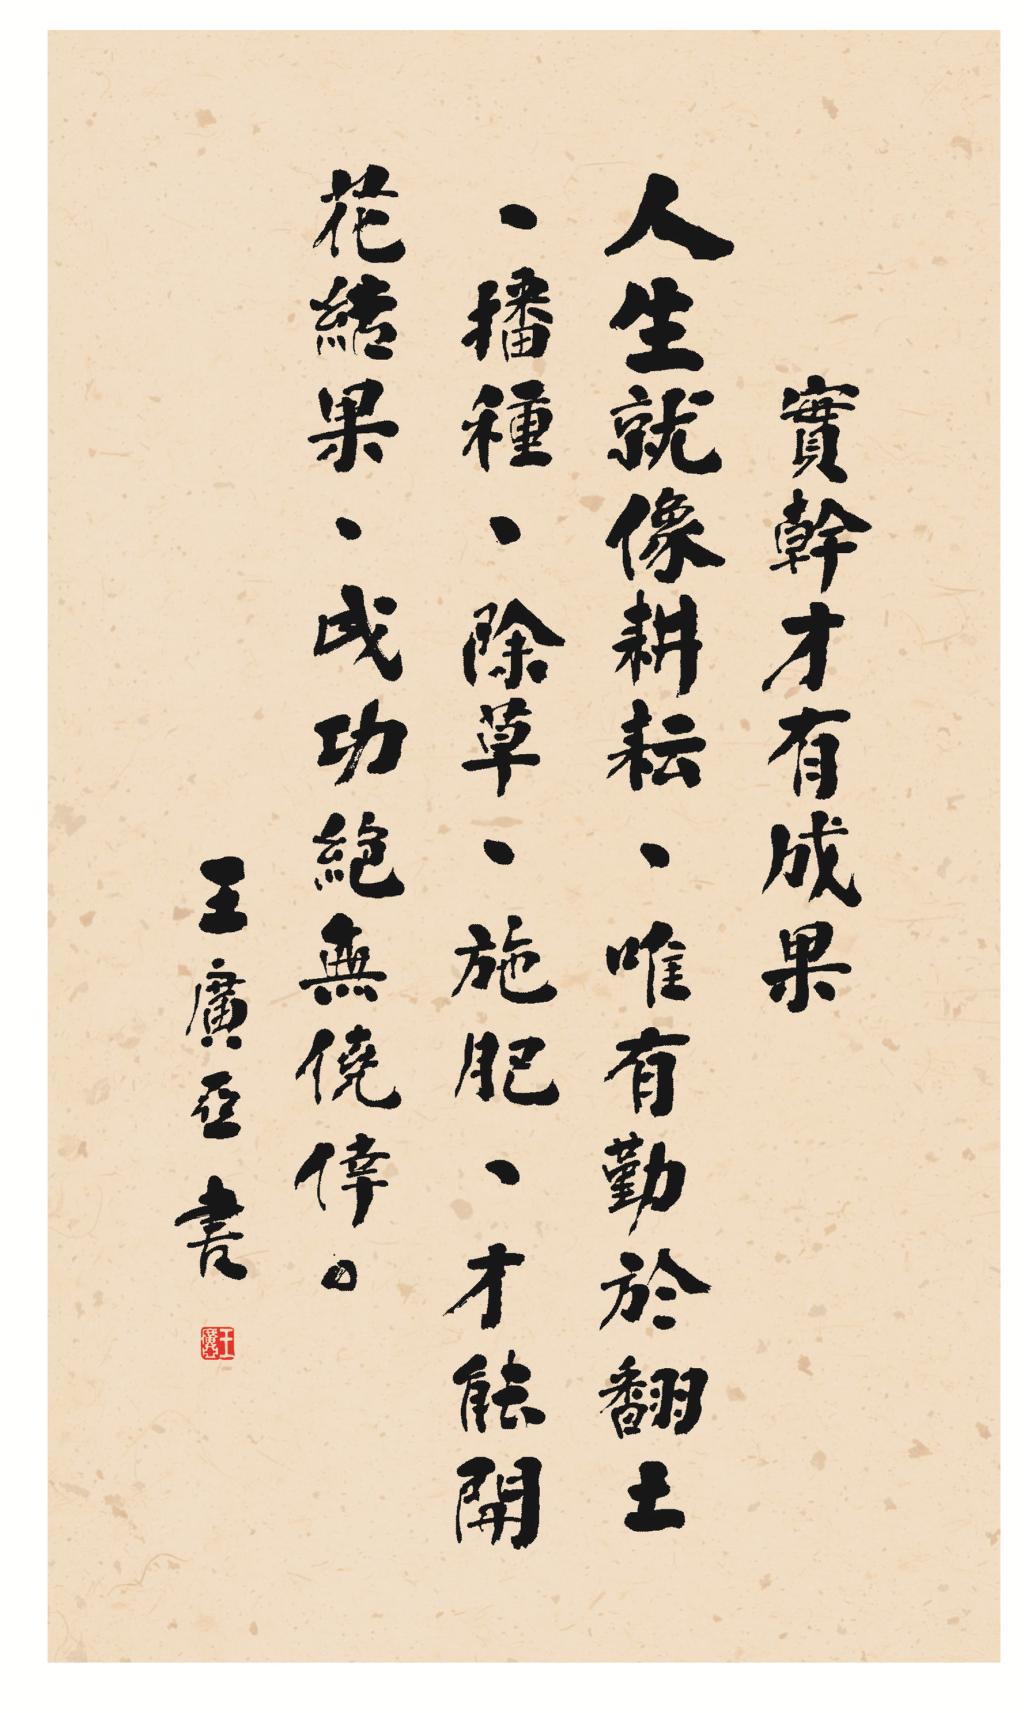 實幹才有成果
人生就像耕耘、唯有勤於翻土
、播種、除草、施肥、才能開
花結果、成功絕無僥倖。
王廣亞 書
王廣亞